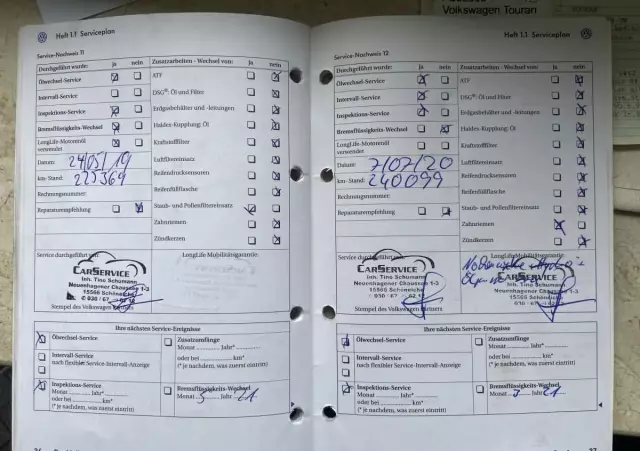 Volkswagen Touran
Heft 1.1 Serviceplan
Service-Nachweis 11
Durchgeführt wurde: ja nein
Zusatzarbeiten - Wechsel von: ja nein
Ölwechsel-Service
ATF
Intervall-Service
DSG®: Öl und Filter
Inspektions-Service
Erdgasbehälter und -leitungen
Bremsflüssigkeits-Wechsel
Haldex-Kupplung: Öl
LongLife-Motorenöl
verwendet
Kraftstofffilter
Datum: 24/05/19
Luftfiltereinsatz
km-Stand:
Reifendrucksensoren
Rechnungsnummer:
Reifenfüllflasche
Reparaturempfehlung
Staub- und Pollenfiltereinsatz
Zahnriemen
Zündkerzen
Service durchgeführt von:
LongLife Mobilitätsgarantie.
CARSERVICE
Inh. Tino Schumann
Neuenhagener Chaussee 1-3
15566 Schöneiche
Stempel des Volkswagen Partners
Ihre nächsten Service-Ereignisse
Ölwechsel-Service
Zusatzumfänge
Monat Jahr*
oder bei km*
(* je nachdem, was zuerst eintritt)
Intervall-Service
nach flexibler Service-Intervall-Anzeige
Inspektions-Service
Monat Jahr*
oder bei km*
(* je nachdem, was zuerst eintritt)
Bremsflüssigkeits-Wechsel
Monat 5 Jahr 21
Heft 1.1 Serviceplan
Service-Nachweis 12
Durchgeführt wurde: ja nein
Zusatzarbeiten - Wechsel von: ja nein
Ölwechsel-Service
ATF
Intervall-Service
DSG®: Öl und Filter
Inspektions-Service
Erdgasbehälter und -leitungen
Bremsflüssigkeits-Wechsel
Haldex-Kupplung: Öl
LongLife-Motorenöl
verwendet
Kraftstofffilter
Datum: 7/07/20
Luftfiltereinsatz
km-Stand: 240099
Reifendrucksensoren
Rechnungsnummer:
Reifenfüllflasche
Reparaturempfehlung
Staub- und Pollenfiltereinsatz
Zahnriemen
Zündkerzen
Service durchgeführt von:
LongLife Mobilitätsgarantie.
CARSERVICE
Inh. Tino Schumann
Neuenhagener Chaussee 1-3
15566 Schöneiche
Stempel des Volkswagen Partners
Ihre nächsten Service-Ereignisse
Ölwechsel-Service
Zusatzumfänge
Monat Jahr*
oder bei km*
(* je nachdem, was zuerst eintritt)
Intervall-Service
nach flexibler Service-Intervall-Anzeige
Inspektions-Service
Monat Jahr*
oder bei km*
(* je nachdem, was zuerst eintritt)
Bremsflüssigkeits-Wechsel
Monat Jahr 21